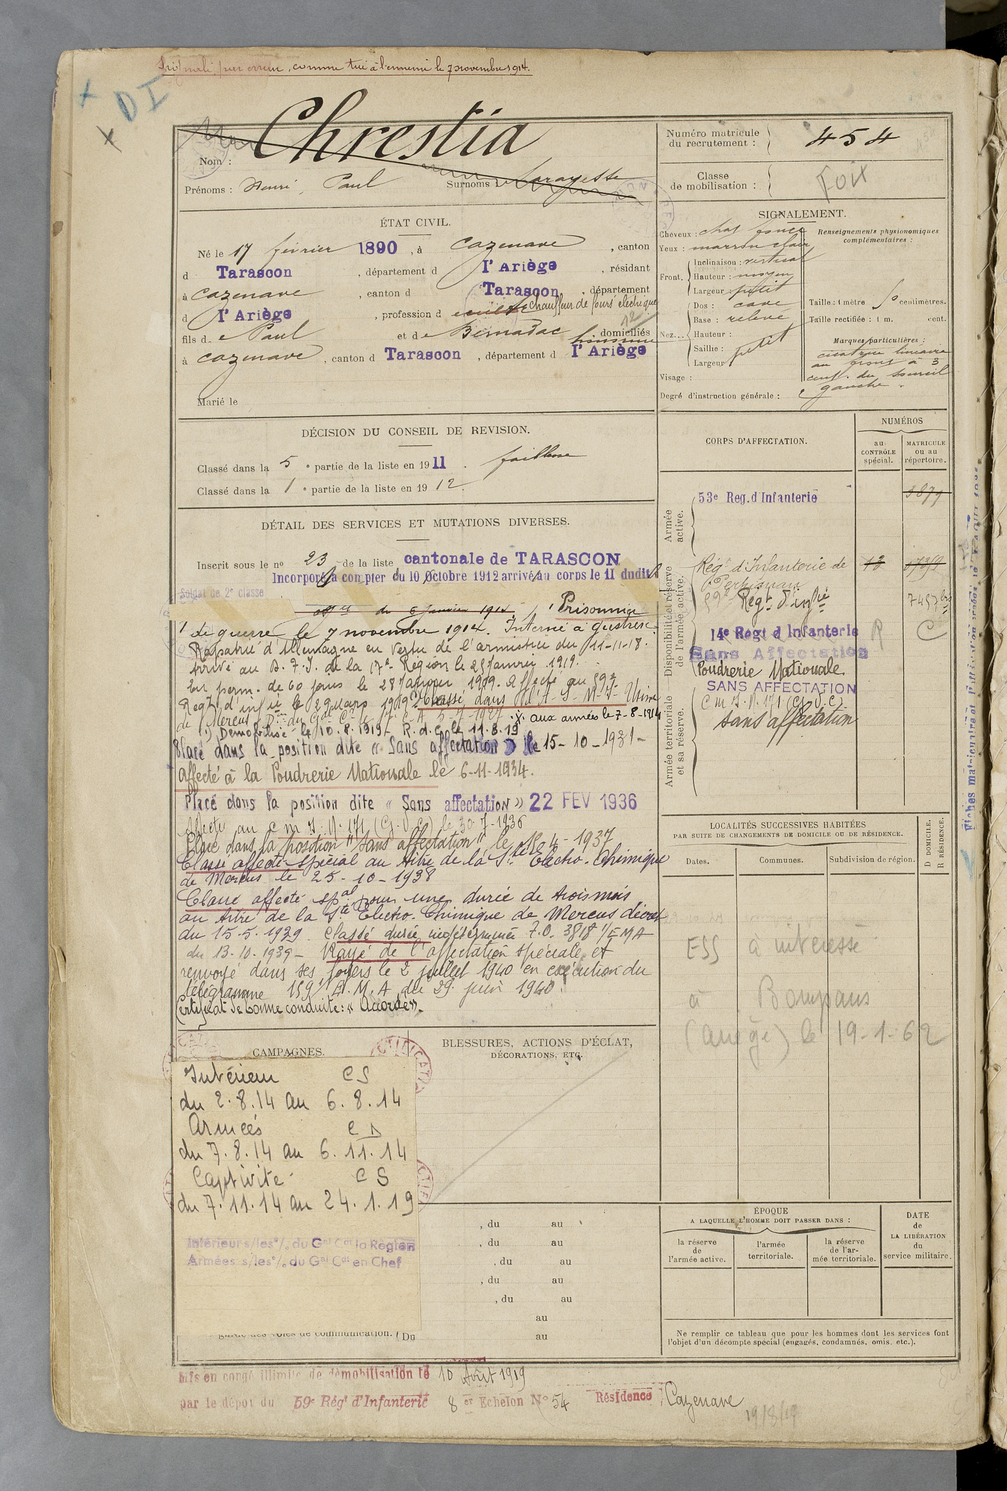 Signalé par erreur, comme tué à l'ennemi le 7 novembre 1914.
DI
Chrestia
Nom :
Prénoms : Henri, Paul Surnoms :
Numéro matricule du recrutement : 454
Classe de mobilisation :
FOIX
ÉTAT CIVIL.
Né le 17 février 1890, à Cazenave, canton
d Tarascon, département d l'Ariège, résidant
à Cazenave, canton d Tarascon, département
d l'Ariège, profession d chauffeur de fours électriques
fils de Paul et de Bernadac, domiciliés
à Cazenave, canton d Tarascon, département d l'Ariège
Marié le
SIGNALEMENT.
Cheveux : chat. foncé
Yeux : marron clair
Front. Inclinaison : vertical
Hauteur : moyen
Largeur : petit
Nez... Dos : cave
Base : relevé
Hauteur :
Saillie : petit
Largeur
Visage :
Renseignements physionomiques complémentaires :
Taille : 1 mètre 50 centimètres.
Taille rectifiée : 1 m. cent.
Marques particulières :
cicatrice linéaire
au front à 3
cent. du sourcil
gauche.
Degré d'instruction générale :
DÉCISION DU CONSEIL DE REVISION.
Classé dans la 5e partie de la liste en 1911. faiblesse
Classé dans la 1e partie de la liste en 1912.
DÉTAIL DES SERVICES ET MUTATIONS DIVERSES.
Inscrit sous le no 23 de la liste cantonale de TARASCON
Incorporé à compter du 10 Octobre 1912 arrivé au corps le 11 dudit
Soldat de 2e classe
Prisonnier
de guerre le 7 novembre 1914. Interné à Gustrow.
Rapatrié d'Allemagne en vertu de l'armistice du 11-11-18.
Arrivé au D. T. I. de la 17e Région le 25 Janvier 1919.
En perm. de 60 jours le 28 Janvier 1919. Affecté au 59e
Regt d'infie le 29 Mars 1919. Classé dans
aux armées le 7-8-1914
Démobilisé le 10.8.1919. R. d. C. le 11.8.19
Placé dans la position dite « Sans affectation » le 15-10-1931-
Affecté à la Poudrerie Nationale le 6-11-1934.
Placé dans la position dite « Sans affectation » 22 FEV 1936
Affecté au c m I. N. 171 (G.V.C) le 30-7-1936
Placé dans la position "sans affectation" le 15-4-1937
Classé affecté spécial au titre de la Sté Electro-Chimique
de Mercus le 25-10-1938
Classé affecté spal pour une durée de trois mois
au titre de la Sté Electro-Chimique de Mercus décret
du 15.5.1929. Classé durée indéterminée T.O. 3818/EMA
du 13-10-1939- Rayé de l'affectation spéciale et
renvoyé dans ses foyers le 2 juillet 1940 en exécution du
Télégramme 159 E.M.A du 29 juin 1940.
Certificat de bonne conduite : « Accordé ».
CORPS D'AFFECTATION.
NUMÉROS
AU CONTRÔLE spécial.
MATRICULE ou au répertoire.
Armée active.
53e Reg. d'Infanterie
Disponibilité et réserve de l'armée active.
Régt d'Infanterie de Perpignan
59e Regt d'Infie
14e Regt d'Infanterie R C
Sans Affectation
Poudrerie Nationale.
SANS AFFECTATION
Armée territoriale et sa réserve.
C m I. N. 171 (G.V.C)
Sans affectation
LOCALITÉS SUCCESSIVES HABITÉES
PAR SUITE DE CHANGEMENTS DE DOMICILE OU DE RÉSIDENCE.
Dates. Communes. Subdivision de région. D DOMICILE. R RÉSIDENCE.
ESS à intéressé
à Bompans
(Ariège) le 19-1-62
CAMPAGNES.
Intérieur CS
du 2.8.14 au 6.8.14
Armées CD
du 7.8.14 au 6.11.14
Captivité - CS
du 7.11.14 au 24.1.19
Intérieur s/les o/ du Gal Ct la Région
Armées s/les o/ du Gal Ct en Chef
BLESSURES, ACTIONS D'ÉCLAT,
DÉCORATIONS, ETC.
, du au
, du au
, du au
, du au
, du au
au
garde des voies de communication. Du au
ÉPOQUE
A LAQUELLE L'HOMME DOIT PASSER DANS :
la réserve de l'armée active.
l'armée territoriale.
la réserve de l'armée territoriale.
DATE DE LA LIBÉRATION du service militaire.
Ne remplir ce tableau que pour les hommes dont les services font
l'objet d'un décompte spécial (engagés, condamnés, omis, etc.).
Mis en congé illimité de démobilisation le 10 Août 1919
par le dépôt du 59e Régt d'Infanterie 8 er Echelon No 54 Résidence : Cazenave
19/8/19